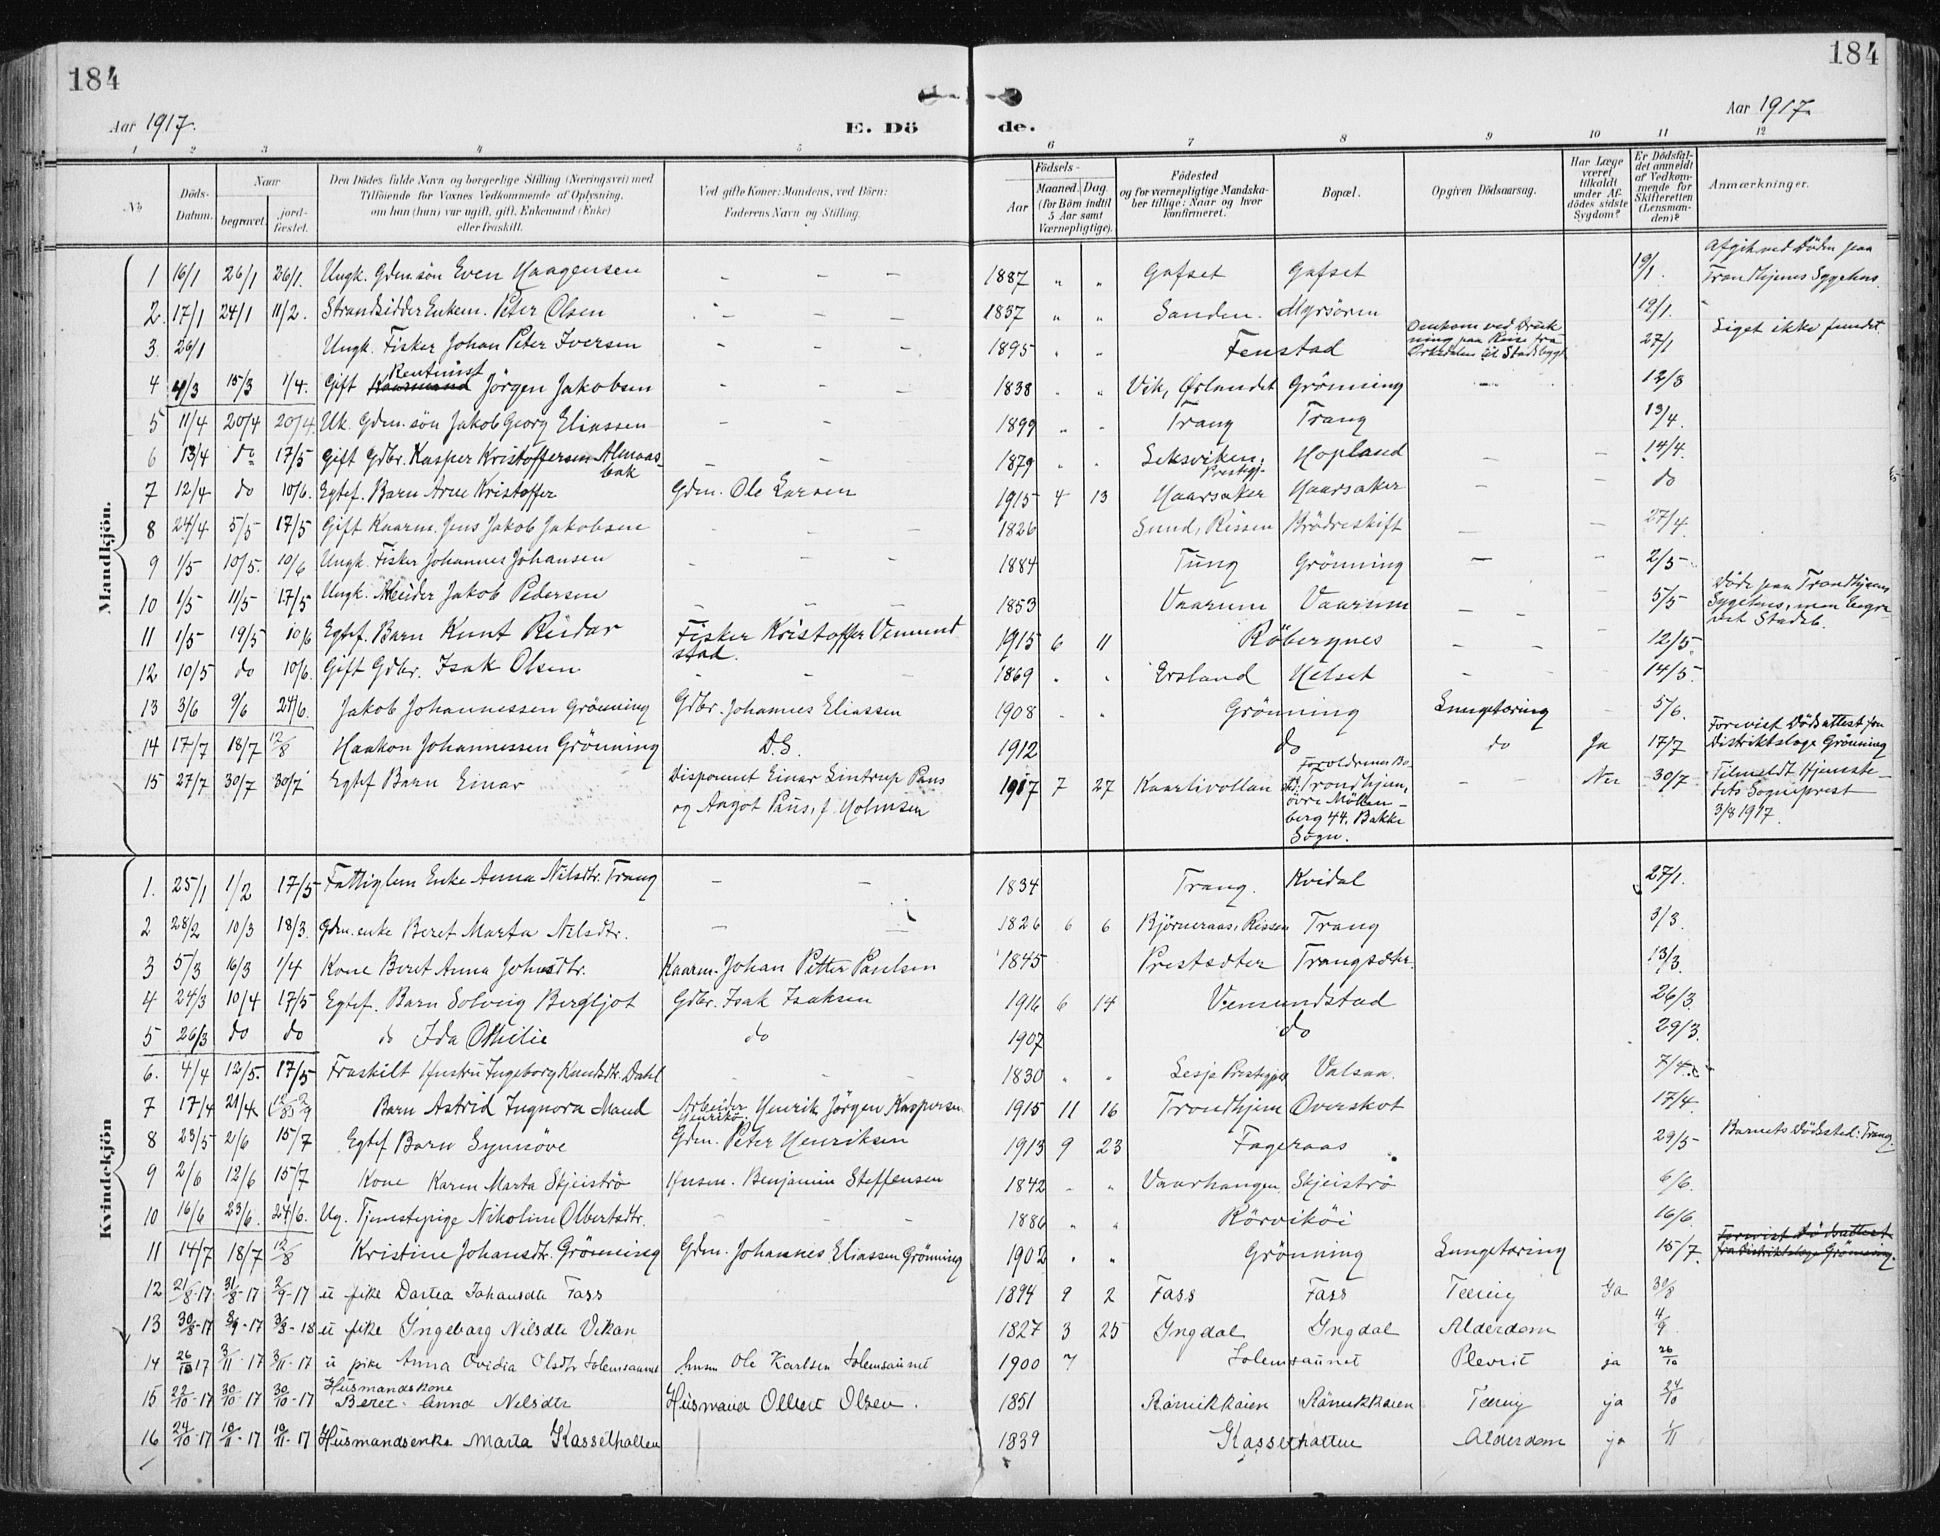 184
184
Aar 1917.
E. Dö
de.
Aar 1917.
1 2 3 4 5 6 7 8 9 10 11 12
No
Döds-Datum.
Naar
begravet.
jord-fæstet.
Den Dödes fulde Navn og borgerlige Stilling (Næringsvei) med
Tilföiende for Voxnes Vedkommende af Oplysning,
om han (hun) var ugift, gift, Enkemand (Enke)
eller fraskilt.
Ved gifte Koner: Mandens, ved Börn:
Faderens Navn og Stilling.
Födsels-
Aar
Maaned. Dag.
(for Börn indtil
5 Aar samt
Værnepligtige).
Födested
og for værnepligtige Mandska-
ber tillige: Naar og hvor
konfirmeret.
Bopæl.
Opgiven Dödsaarsag.
Har Læge
været
tilkaldt
under Af-
dödes sidste
Sygdom?
Er Dödsfal-
det anmeldt
af Vedkom-
mende for
Skifteretten
(Lensman-
den)?
Anmærkninger.
Mandkjön.
1 16/1 26/1 26/1. Ungk. Gdm. sön Even Haagensen – – – 1887 " " Gafset Gafset 19/1. Afgik ved Döden paa Trondhjems Sygehus.
2. 17/1 24/1 11/2. Strandsidder Enkem. Peter Olsen – – – 1837 " " Sanden. Myrsören 19/1.
3. 26/1 Ungk. Fisker Johan Peter Iversen – – – 1895 " " Fenstad Omkom ved Druk-ning paa Reise fra Orkedalen til Stadsbygd 27/1 Liget ikke fundet
4 4/3 15/3 1/4. Gift Rentenist Jörgen Jakobsen – – – 1838 " " Vik, Ørlandet Grönning – 12/3
5 11/4 20/4 20/4. Uk. Gdm. sön Jakob Georg Eliassen – – 1899 " " Trang Trang 13/4.
6 13/4 do 17/5 Gift Gdbr. Kasper Kristoffersen Almaas-bak – – 1879 " " Leksviken, Prestegj. Hopland – – 14/4.
7 12/4 do 10/6. Egtef. Barn Arne Kristoffer Gdm. Ole Larsen 1915 4 13 Haarsaker Haarsaker – – do
8 24/4 5/5 17/5 Gift Kaarm. Jens Jakob Jakobsen – – 1826 Sund, Rissen Brödreskift – – 27/4.
9 1/5 10/5. 10/6 Ungk. Fisker Johannes Johansen – – – 1884 Tung Grönning – – 2/5
10 1/5 11/5 17/5 Ungk. Arbeider Jakob Pedersen – – – 1853 Vaarum Vaarum – – 5/5 Döde paa Trondhjems Sygehus, men begra-vet Stadsb.
11 1/5 19/5 10/6 Egtef. Barn Knut Reidar Fisker Kristoffer Vemund-stad. 1915 6 11 Röbergnes – – – 12/5.
12 10/5 do 10/6. Gift Gdbr. Isak Olsen – – – 1869 " " Ersland Helset – – 14/5.
13 3/6 9/6 24/6. Jakob Johannessen Grönning Gdbr. Johannes Eliassen 1908 " " Grönning Lungetæring – 5/6.
14 17/7 18/7 12/8 Haakon Johannessen Grönning D.S. 1912 do do Ja 17/7 Forevist Dödsattest fra Distriktslæge Grönning
15 27/7 30/7 30/7 Egtef Barn Einar Disponent Einar Lintrup Paus og Aagot Paus, f. Holmsen 1917 7 27 Kaarlivollan Foreldrenes Bo-sted: Trondhjem, övre Möllen-berg 44. Bakke Sogn. – – Nei 30/7. Tilmeldt Hjemste-dets Sogneprest 3/8 1917.
Kvindekjön
1. 25/1 1/2 17/5 Fattiglem Enke Anna Nilsdtr. Trang – – 1834 Trang. Kvidal 27/1.
2 28/2 10/3 18/3. Gdm. enke Beret Marta Nilsdtr. – – 1826 6 6 Björneraas, Rissen Trang 3/3.
3 5/3 16/3 1/4 Kone Beret Anna Johnsdtr. Kaarm. Johan Petter Paulsen 1845 Prestsæter Trangsætr. 13/3.
4 24/3 10/4 17/5 Egtef. Barn Solveig Bergljot Gdbr. Isak Isaksen 1916 6 14 Vemundstad 26/3.
5 26/3 do do do Ida Othilie do 1907 do 29/3.
6. 4/4 12/5. 17/5 Fraskilt Hustru Ingeborg Knutsdtr. Dahl – – – 1830 " " Lesje Prestegjeld Valsaa. 7/4.
7 17/4 21/4 Barn Astrid Ingnora Maud Arbeider Henrik Jörgen Kaspersen 1915 11 16 Trondhjem Overskot 17/4.
8 23/5 2/6 15/7 Egtef Barn Synnöve Gdm. Peter Henriksen 1913 9 23 Fageraas 29/5 Barnets Dödssted: Trang.
9 2/6 12/6 15/7 Kone Karen Marta Skjeiströ Husm. Benjamin Steffensen 1842 – " Vaarhangen Skjeiströ 6/6.
10 16/6 23/6. 24/6. Ug. Tjenestepige Nikoline Olbertsdtr. – – – 1886 " " Rörviköi 16/6.
11 14/7 18/7 12/8 Kristine Johansdtr. Grönning Gdm. Johannes Eliassen Grönning 1902 " " Grönning Lungetæring 15/7. Forevist Dödsattest fra Distriktslæge Grönning.
12 21/8-17 31/8-17 2/9-17 u pike Dortea Johansdtr Fass 1894 9 2 Fass Fass Tæring Ja 30/8
13 30/8-17 8/9-17 3/8-18 u pike Ingeborg Nilsdtr Vikan 1827 3 25 Yngdal Yngdal Alderdom 4/9.
14 26/10 17 3/11-17 3/11-17 u pike Anna Ovidia Olsdtr Solemsaunet husm Ole Karlsen Solemsaunet 1900 7 Solemsaunet Plevrit ja 26/10
15 22/10-17 30/10-17 30/10-17 Husmandskone Beret Anna Nilsdtr Husmand Olbert Olsen. 1851 Rörvikkaien Rörvikkaien Tæring ja 24/10
16 24/10-17 10/11-17 10/11-17 Husmandsenke Marta Kasselhatten 1839 Kasselhatten Alderdom ja 1/11